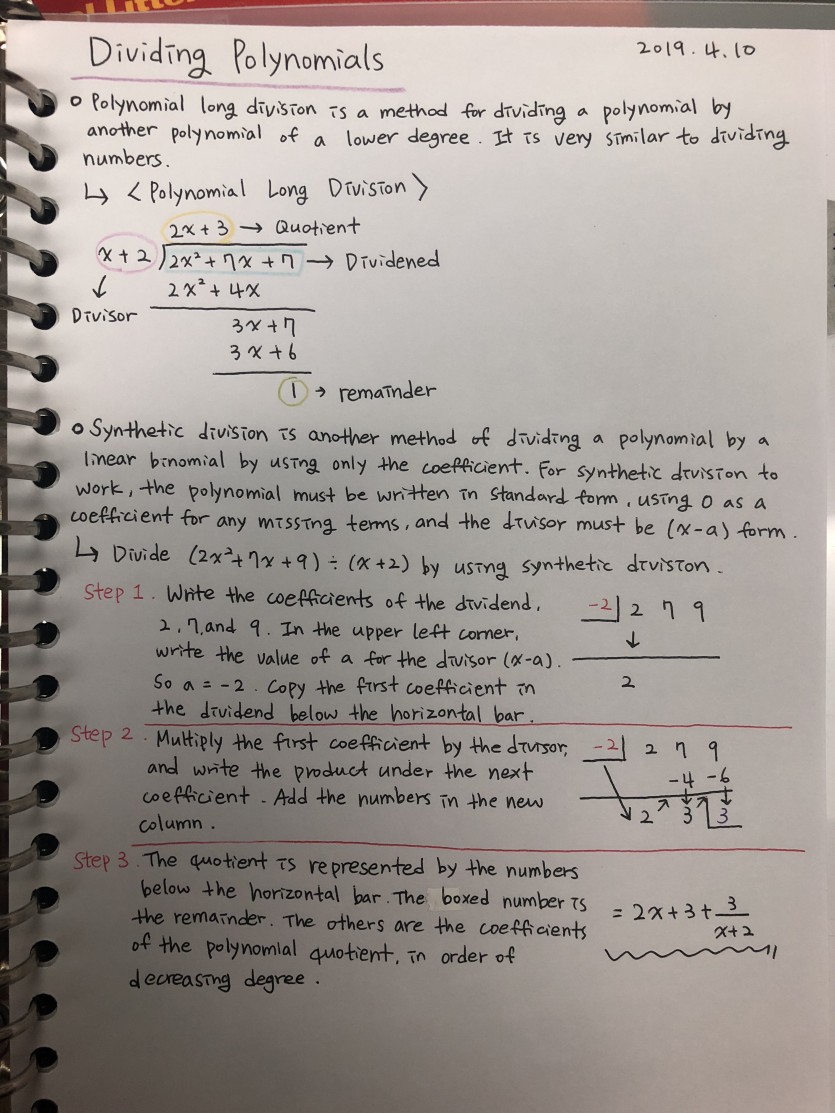 Dividing Polynomials
2019. 4. 10
o Polynomial long division is a method for dividing a polynomial by
another polynomial of a lower degree. It is very similar to dividing
numbers.
↳ < Polynomial Long Division >
2x + 3 → Quotient
x + 2 ) 2x² + 7x + 7 → Dividened
↓ 2x² + 4x
Divisor
3x + 7
3x + 6
1 → remainder
o Synthetic division is another method of dividing a polynomial by a
linear binomial by using only the coefficient. For synthetic division to
work, the polynomial must be written in standard form, using 0 as a
coefficient for any missing terms, and the divisor must be (x-a) form.
↳ Divide (2x² + 7x + 9) ÷ (x + 2) by using synthetic division.
Step 1. Write the coefficients of the dividend,
2, 7, and 9. In the upper left corner,
write the value of a for the divisor (x-a).
So a = -2. Copy the first coefficient in
the dividend below the horizontal bar.
-2| 2 7 9
↓
2
Step 2. Multiply the first coefficient by the divisor,
and write the product under the next
coefficient. Add the numbers in the new
column.
-2| 2 7 9
-4 -6
2 3 3
Step 3. The quotient is represented by the numbers
below the horizontal bar. The boxed number is
the remainder. The others are the coefficients
of the polynomial quotient, in order of
decreasing degree.
= 2x + 3 + 3
x+2